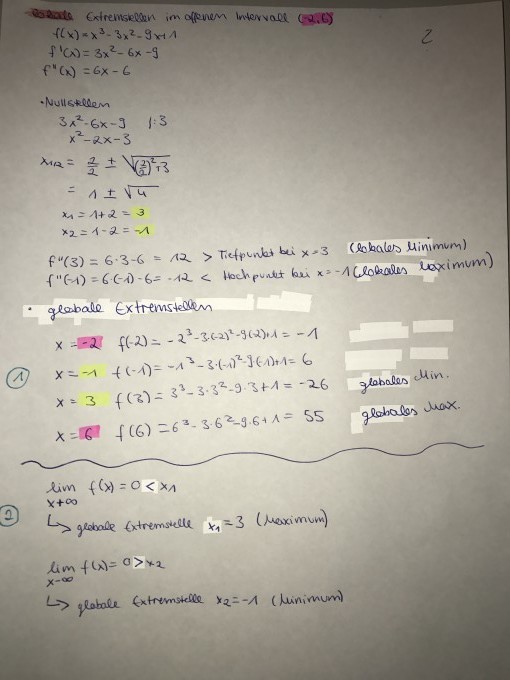 Extremstellen im offenen Intervall (-2,6)
f(x)=x³-3x²-9x+1
f'(x)=3x²-6x-9
f''(x)=6x-6
2
•Nullstellen
3x²-6x-9 |:3
x²-2x-3
x1/2 = 2/2 ± √((2/2)²+3)
= 1 ± √4
x1=1+2=3
x2=1-2=-1
f''(3) = 6·3-6 = 12 > Tiefpunkt bei x=3 (lokales Minimum)
f''(-1)=6·(-1)-6=-12 < Hochpunkt bei x=-1 (lokales Maximum)
• globale Extremstellen
x=-2 f(-2)=-2³-3·(-2)²-9(-2)+1=-1
① x=-1 f(-1)=-1³-3·(-1)²-9(-1)+1=6
x=3 f(3)=3³-3·3²-9·3+1=-26 globales Min.
x=6 f(6)=6³-3·6²-9·6+1=55 globales Max.
lim f(x)=0<x1
x+∞
② ↳ globale Extremstelle x1=3 (Maximum)
lim f(x)=0>x2
x-∞
↳ globale Extremstelle x2=-1 (Minimum)